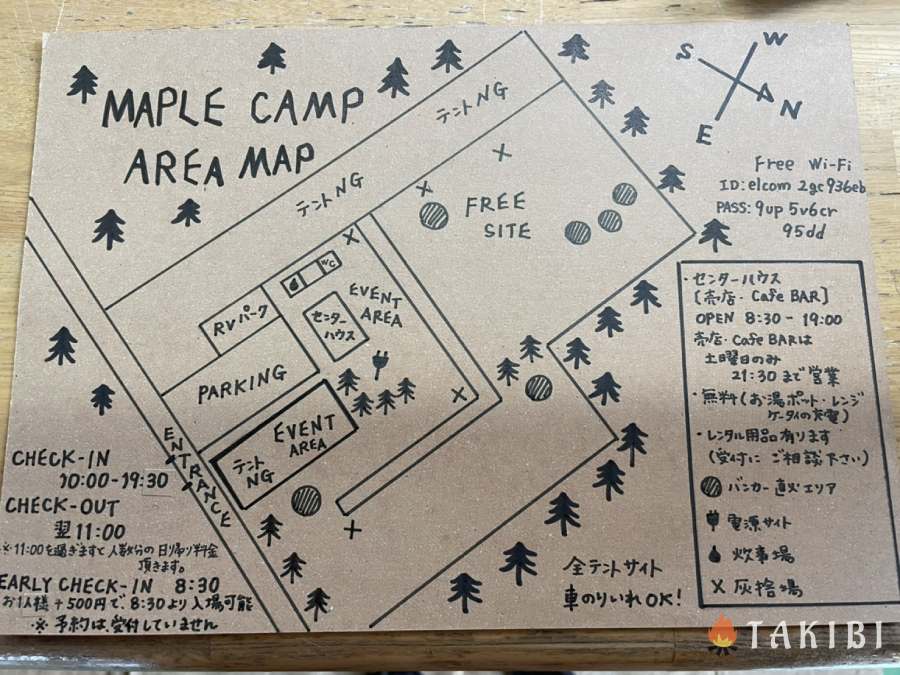 MAPLE CAMP
AREA MAP
テントNG
テントNG
FREE
SITE
S
W
N
E
Free Wi-Fi
ID:elcom 2gc936eb
PASS:9up5v6cr
95dd
WC
RVパーク
センター
ハウス
EVENT
AREA
PARKING
EVENT
AREA
テント
NG
ENTRANCE
CHECK-IN
10:00-19:30
CHECK-OUT
翌11:00
※11:00を過ぎますと人数分の日帰り料金
頂きます。
EARLY CHECK-IN 8:30
お1人様+500円で、8:30より入場可能
※予約は受付していません
・センターハウス
[売店・Cafe BAR]
OPEN 8:30-19:00
売店・Cafe BARは
土曜日のみ
21:30まで営業
・無料(お湯ポット・レンジ
ケータイの充電)
・レンタル用品有ります
(受付にご相談下さい)
バンカー直火エリア
電源サイト
炊事場
X 灰捨場
全テントサイト
車のりいれOK!
TAKIBI